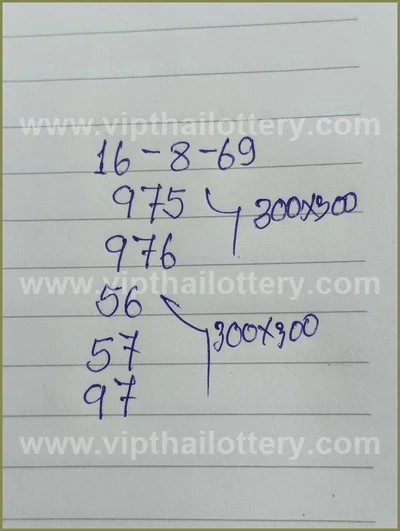 www.vipthailottery.com
16-8-69
975
300x300
976
www.vipthailottery.com
56
300x300
57
97
www.vipthailottery.com